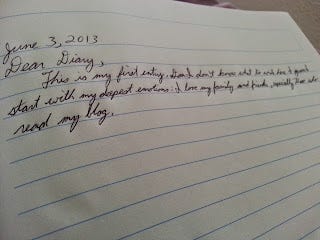 June 3, 2013
Dear Diary,
This is my first entry. I don't know what to write so I guess I'll
start with my deepest emotions: I love my family and friends, especially those who
read my blog.